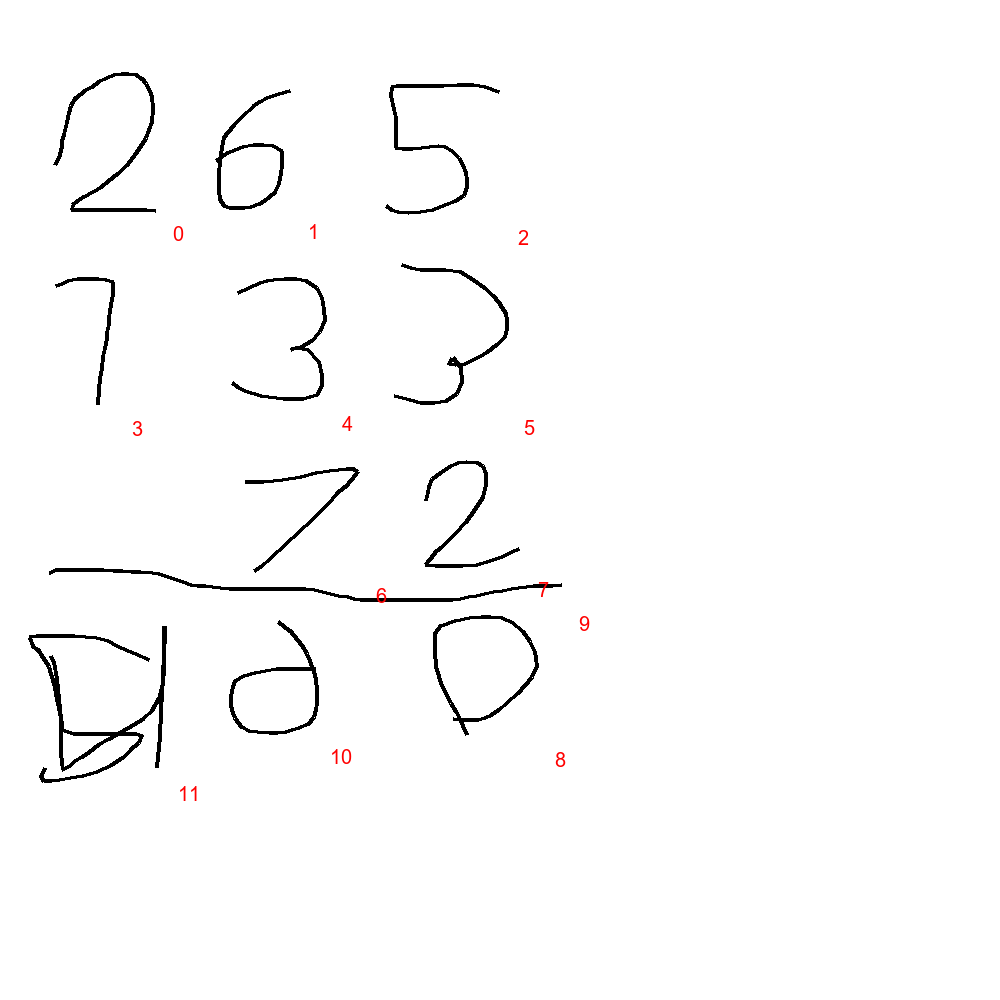 2 6 5
0 1 2
7 3 3
3 4 5
7 2
6 7
9
0
10 8
11